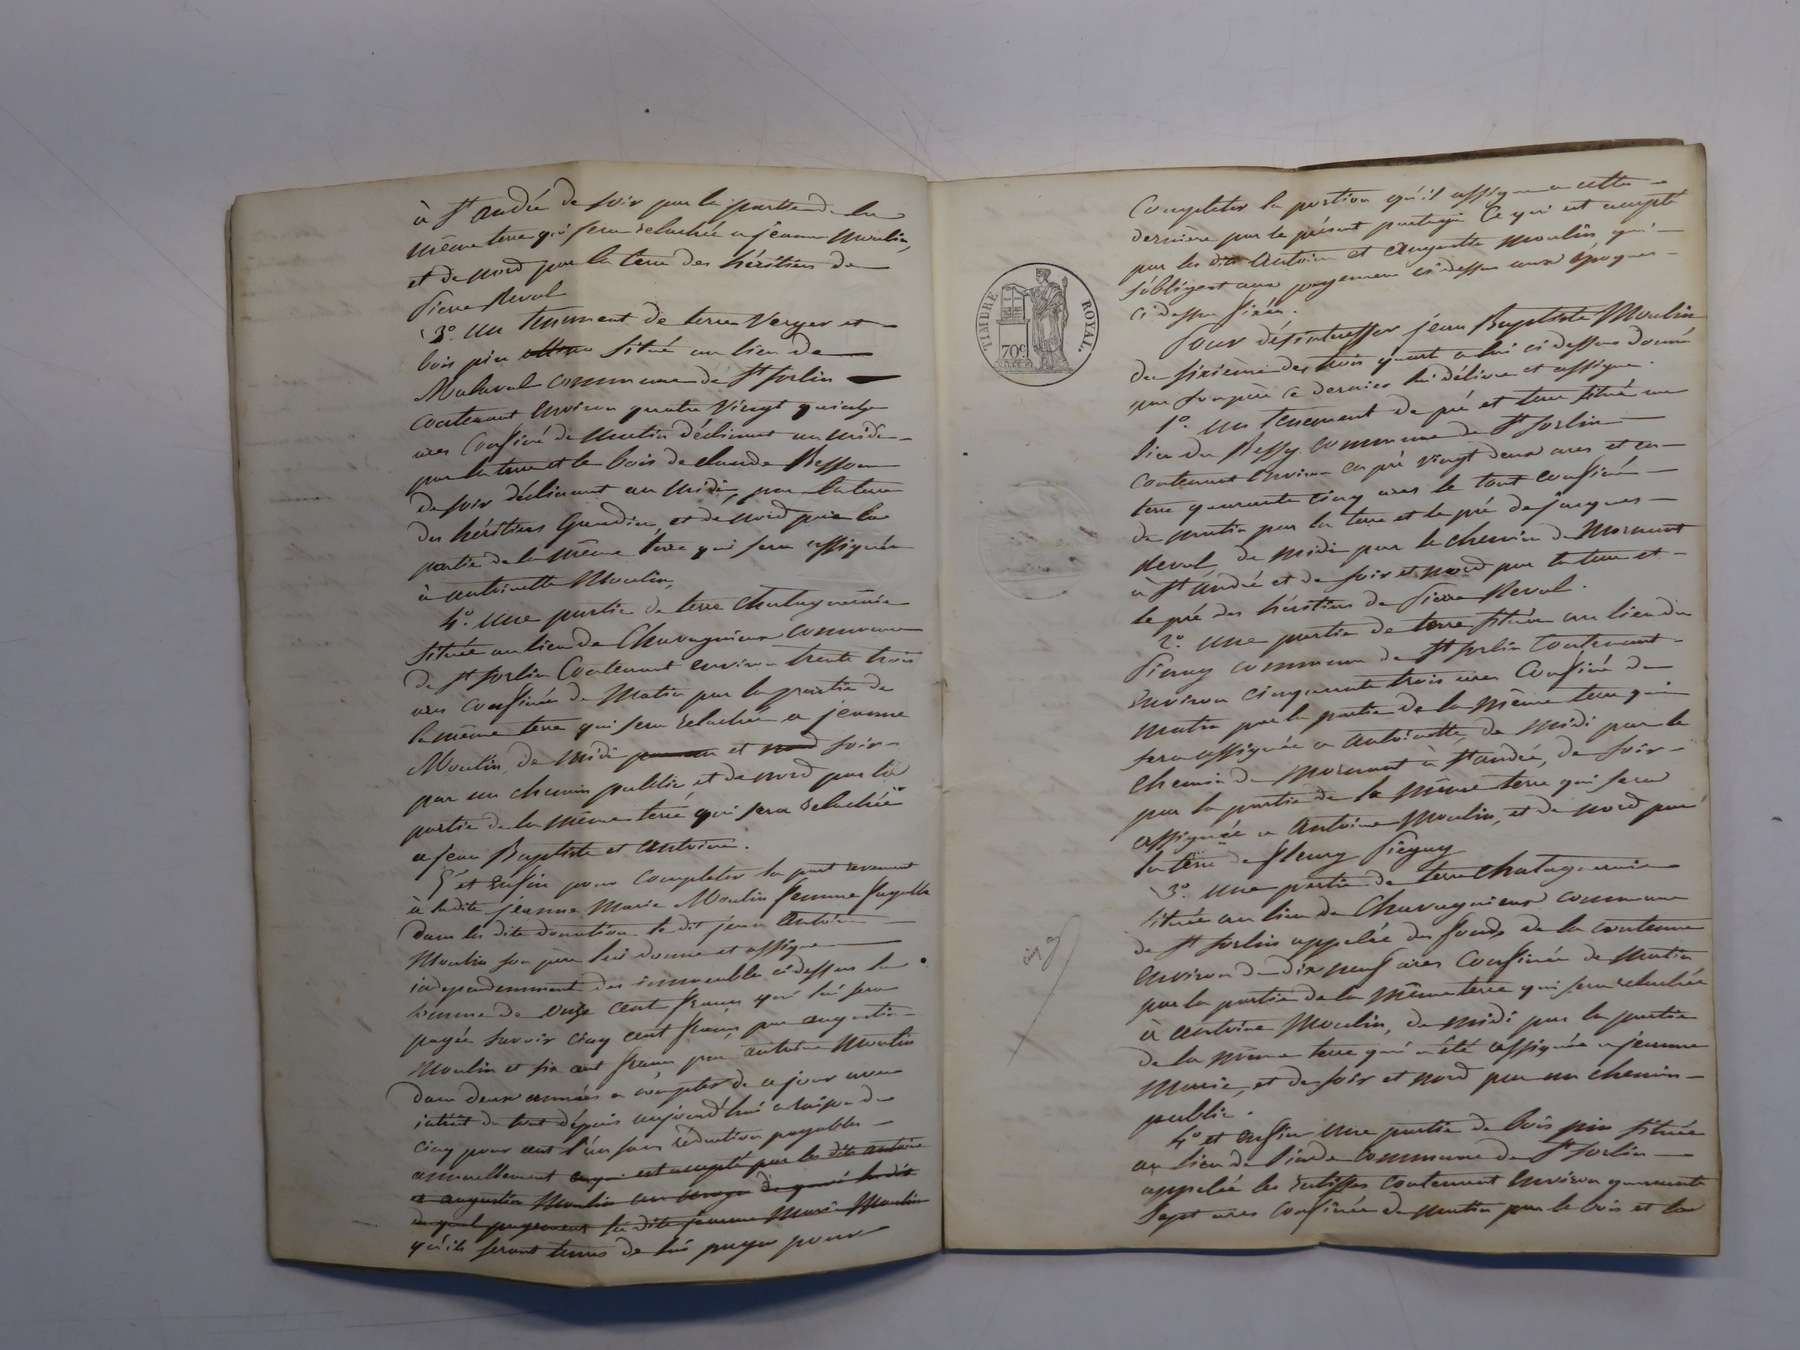 à St andée de soir par la partie de la
même terre qui sera relachée a jeanne Moulin,
et de nord par la terre des héritiers de
Pierre Reval
3.° un tenement de terre Verger et
bois pin situé au lieu de
commune de St Sorlin
contenant environ quatre Vingt quinze
ares Confiné de matin déclinant au midi
par la terre et le bois de claude Besson
de soir déclinant au midi, par la terre
des héritiers Grendin, et de nord par la
partie de la même terre qui sera assignée
à antoinette Moulin,
4.° une partie de terre Chataigneraie
située au lieu de Chavagnieux commune
de St Sorlin Contenant environ trente trois
ares confinée de Matin par la partie de
la même terre qui sera relachée a jeanne
Moulin, de midi et soir
par un chemin public et de nord par la
partie de la même terre qui sera relachée
a jean Baptiste et antoine.
5° et Enfin pour completer la part revenant
à la dite jeanne Marie Moulin femme
dans la dite donation le dit jean Antoine
Moulin son père lui donne et assigne
independemment des immeubles ci dessus la
somme de onze cent francs qui lui sera
payée savoir cinq cent francs par augustin
Moulin et six cent francs par antoine Moulin
dans deux années a compter de ce jour avec
intérêt du tout dépuis aujourd'hui a raison de
cinq pour cent l'an sans réduction payables
annuellement ce qui est accepté par les dits antoine
et augustin Moulin au moyen de quoi
payement la dite jeanne Marie Moulin
qu'ils seront tenus de lui payer pour
TIMBRE ROYAL.
70c
Completer la portion qu'il assigne a cette
dernière par le présent partage Ce qui est accepté
par les dits Antoine et augustin Moulin qui
s'obligent aux payemens ci dessus aux époques
ci dessus fixées.
Pour désintéresser jean Baptiste Moulin
du sixième des trois quart a lui ci dessus donné
par son père ce dernier lui délivre et assigne
1°. un tenement de pré et terre situé au
lieu du Bessy commune de St Sorlin
contenant environ en pré vingt deux ares et en
terre quarante cinq ares le tout confiné
de matin par la terre et le pré de jacques
Reval, de midi par le chemin de Mornant
à St andée et de soir et nord par la terre et
le pré des héritiers de Pierre Reval.
2.° une partie de terre située au lieu du
commune de St Sorlin contenant
environ cinquante trois ares Confiné de
matin par la partie de la même terre qui
sera assignée a Antoinette, de midi par le
chemin de Mornant à St andée, de soir
par la partie de la même terre qui sera
assignée a Antoine Moulin, et de nord par
la terre de fleury
3.° une partie de terre chataigneraie
située au lieu de Chavagnieux commune
de St Sorlin appelée des fonds de la contenue
environ de dix neuf ares Confinée de Matin
par la partie de la même terre qui sera relachée
à antoine Moulin, de midi par la partie
de la même terre qui a été assignée a jeanne
Marie, et de soir et nord par un chemin
public.
4° et enfin une partie de bois pin située
au lieu de commune de St Sorlin
appelée les contenant environ quarante
Sept ares Confinée de matin par le bois et la